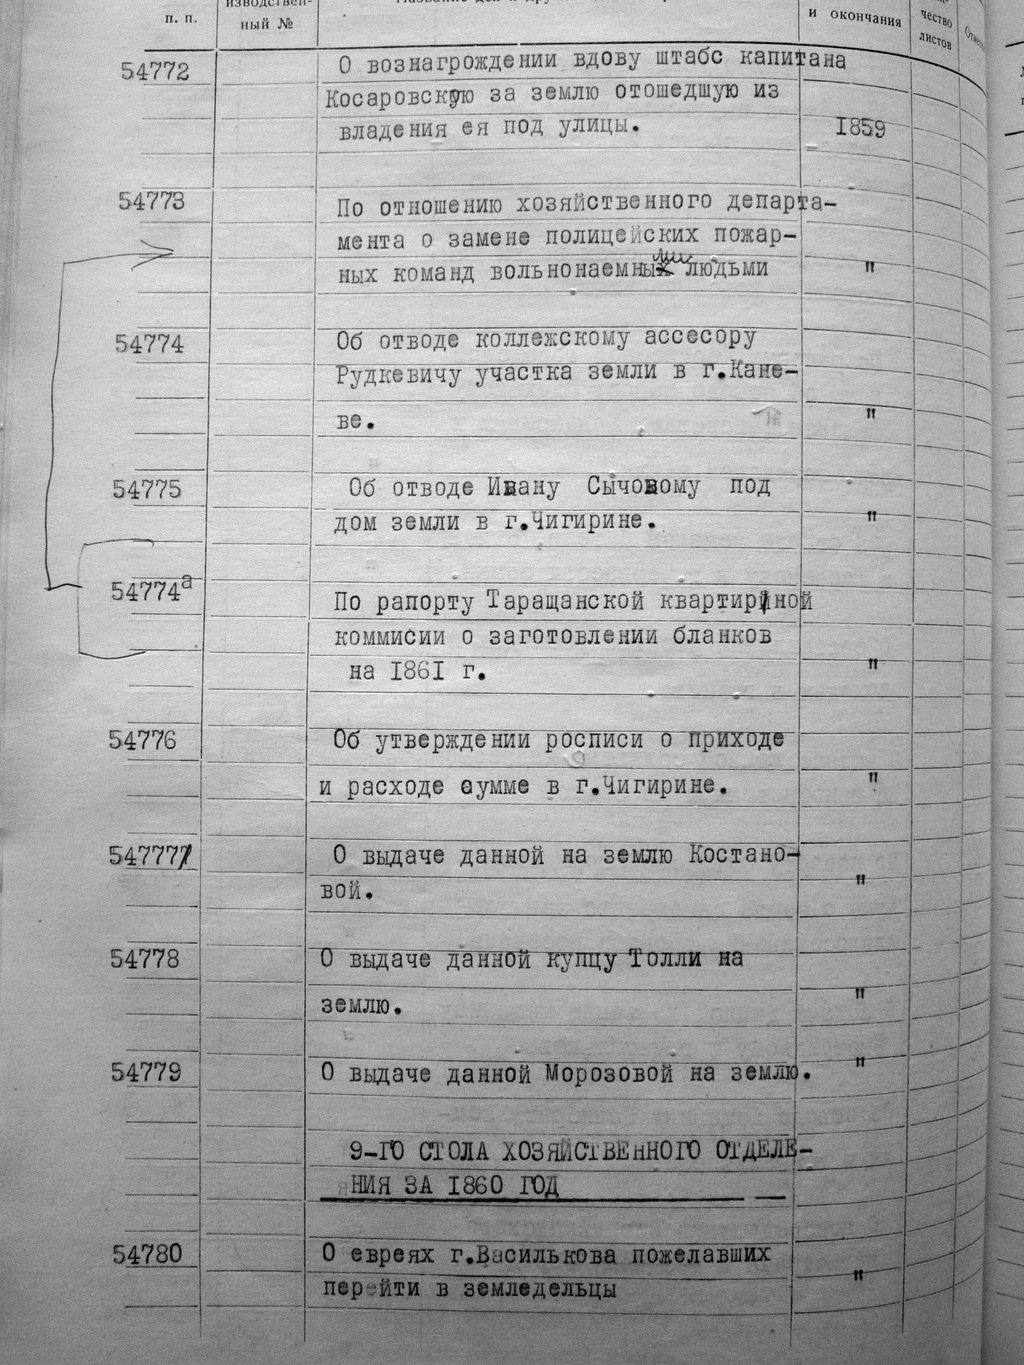 п. п.
ный №
и окончания
чество
листов
54772 О вознагрождении вдову штабс капитана
Косаровскую за землю отошедшую из
владения ея под улицы. 1859
54773 По отношению хозяйственного департа-
мента о замене полицейских пожар-
ных команд вольнонаемными людьми "
54774 Об отводе коллежскому ассесору
Рудкевичу участка земли в г.Кане-
ве. "
54775 Об отводе Ивану Сычовому под
дом земли в г.Чигирине. "
54774а По рапорту Таращанской квартирной
коммисии о заготовлении бланков
на 1861 г. "
54776 Об утверждении росписи о приходе
и расходе сумме в г.Чигирине. "
54777 О выдаче данной на землю Костано-
вой. "
54778 О выдаче данной купцу Толли на
землю. "
54779 О выдаче данной Морозовой на землю. "
9-ГО СТОЛА ХОЗЯЙСТВЕННОГО ОТДЕЛЕ-
НИЯ ЗА 1860 ГОД
54780 О евреях г.Василькова пожелавших
перейти в земледельцы "